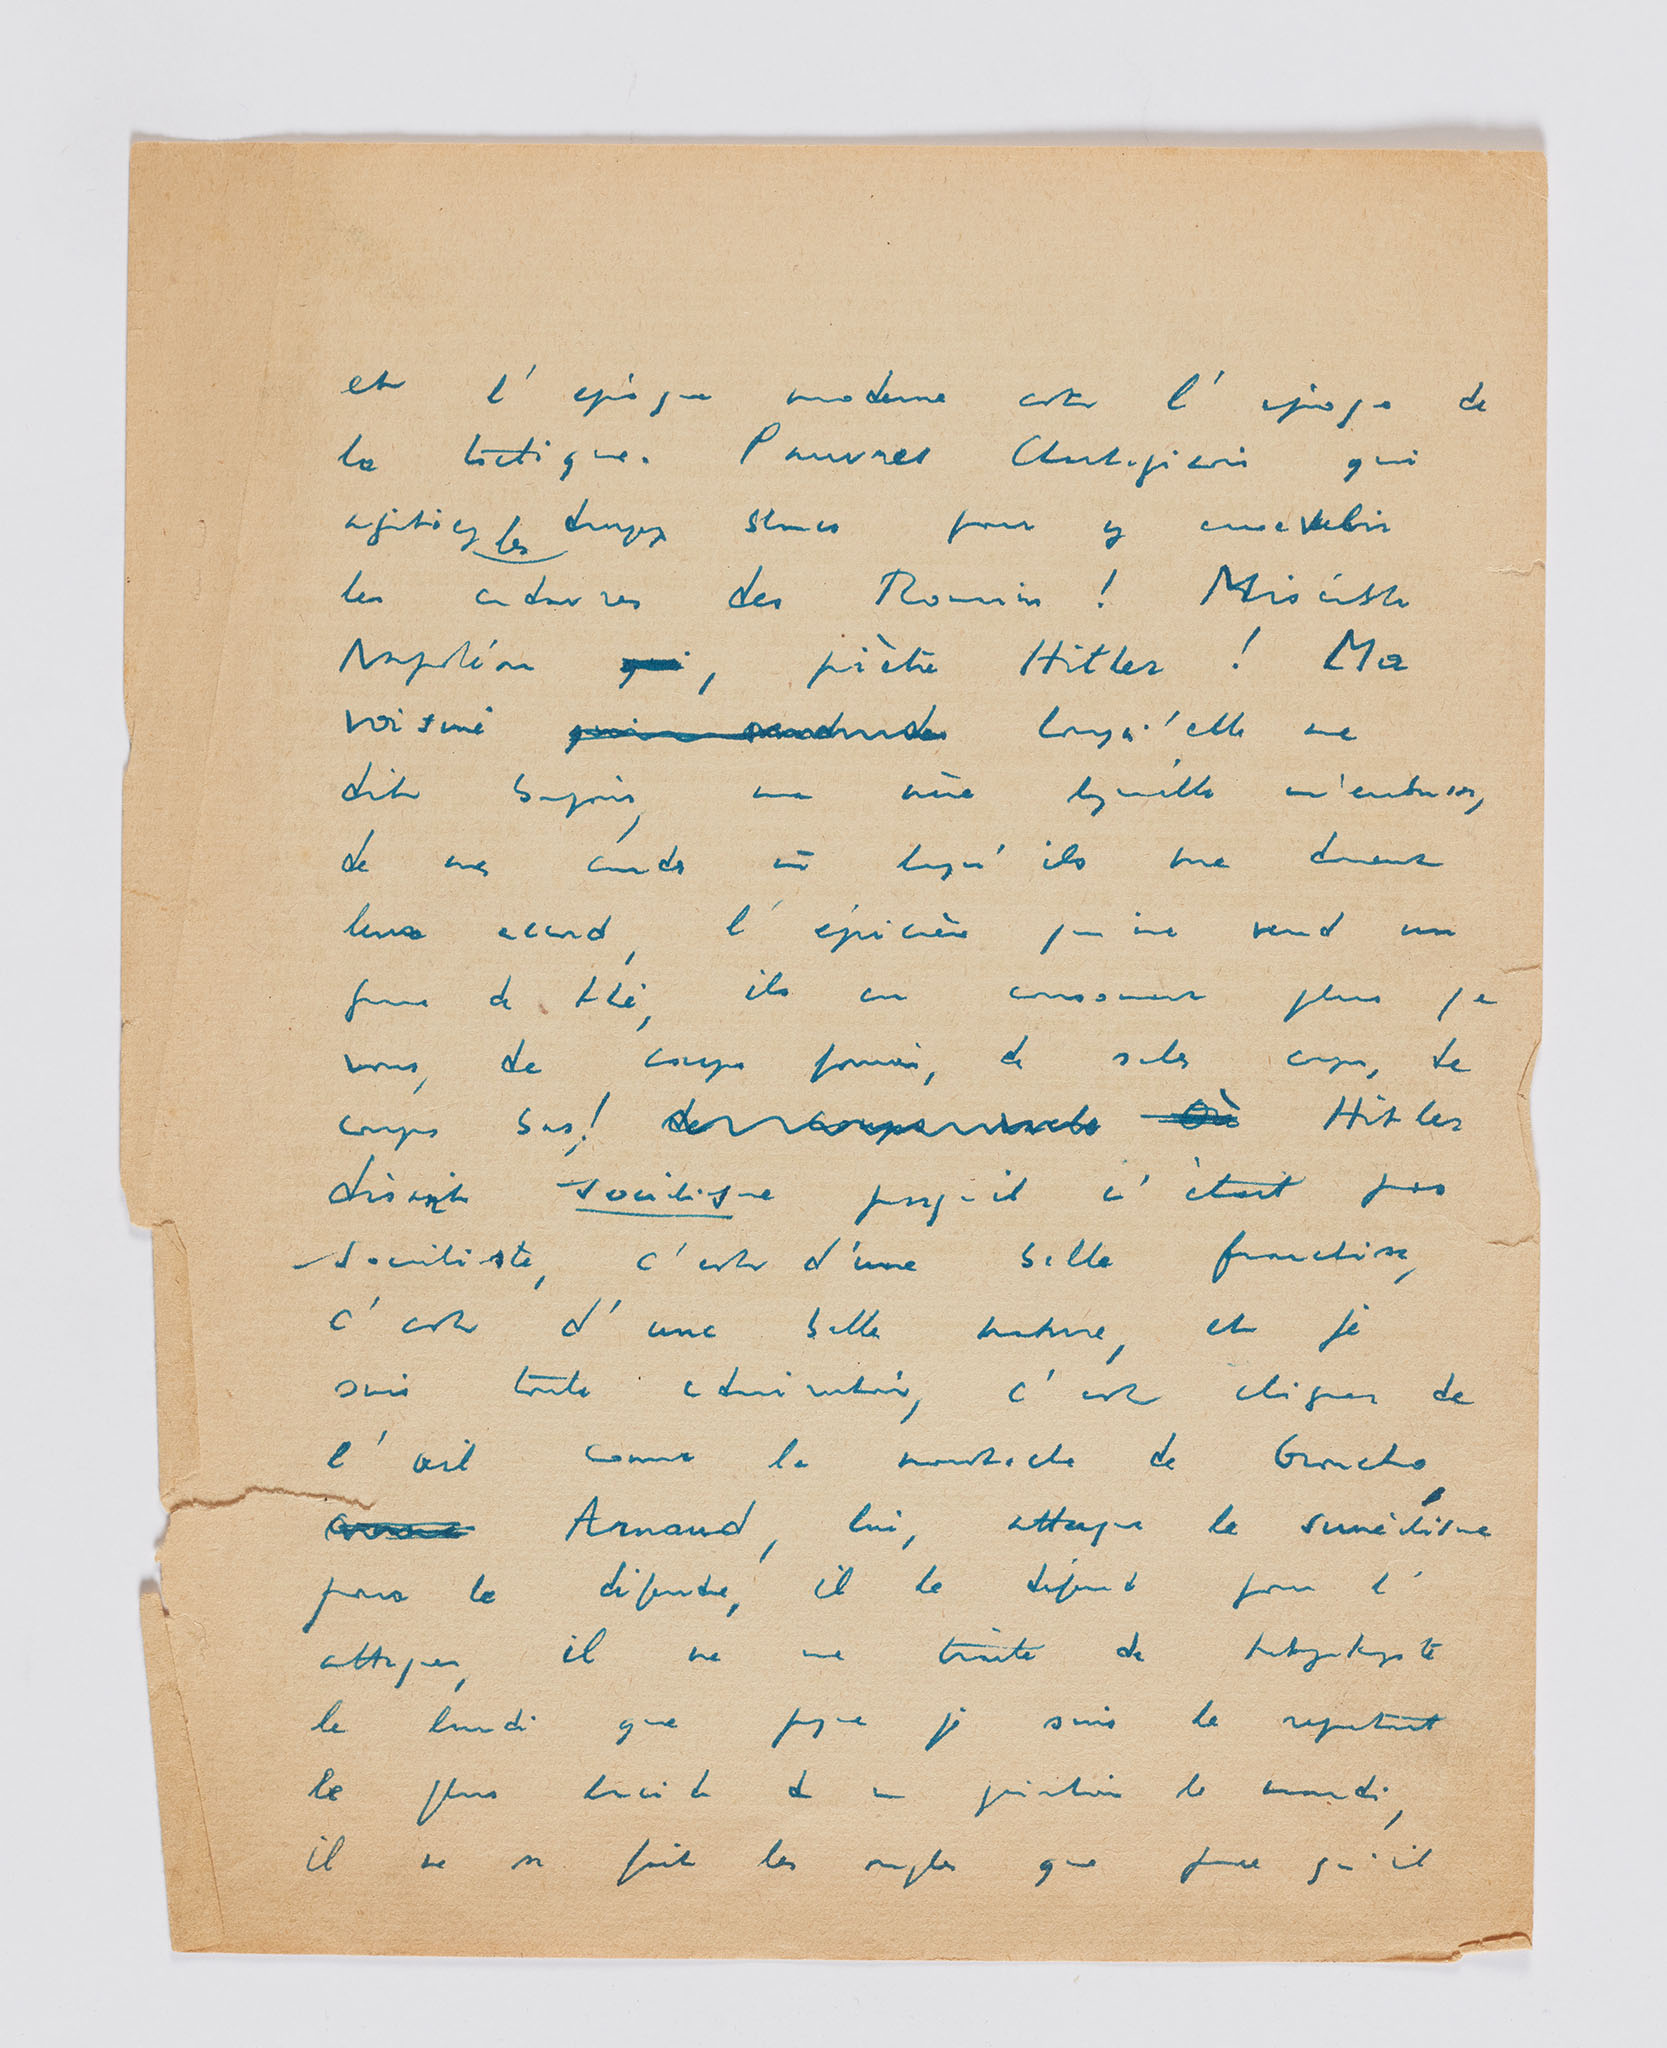 et l'époque moderne est l'époque de
la tactique. Pauvres Carthaginois qui
agitiez les draps blancs pour y ensevelir
les cadavres des Romains ! Ministe
Napoléon qui, piètre Hitler ! Ma
voisine lorsqu'elle me
dit bonjour, ma mère lorsqu'elle m'embrasse,
de mes amis lorsqu'ils me donnent
leur accord, l'épicière qui me vend un
de thé, ils en consomment plus que
vous, de coups fourrés, de sales coups, de
coups bas! des coups Où Hitler
disait socialisme puisqu'il n'était pas
socialiste, c'est d'une belle franchise,
c'est d'une belle nature, et je
suis toute admiration, c'est cligner de
l'œil comme la moustache de Groucho,
comme Arnaud, lui, attaque le surréalisme
pour le défendre, il le défend pour l'
attaquer, il ne me traite de
le lundi que parce que je suis le représentant
le plus lucide de la peinture le mardi,
il ne se fait les ongles que parce qu'il